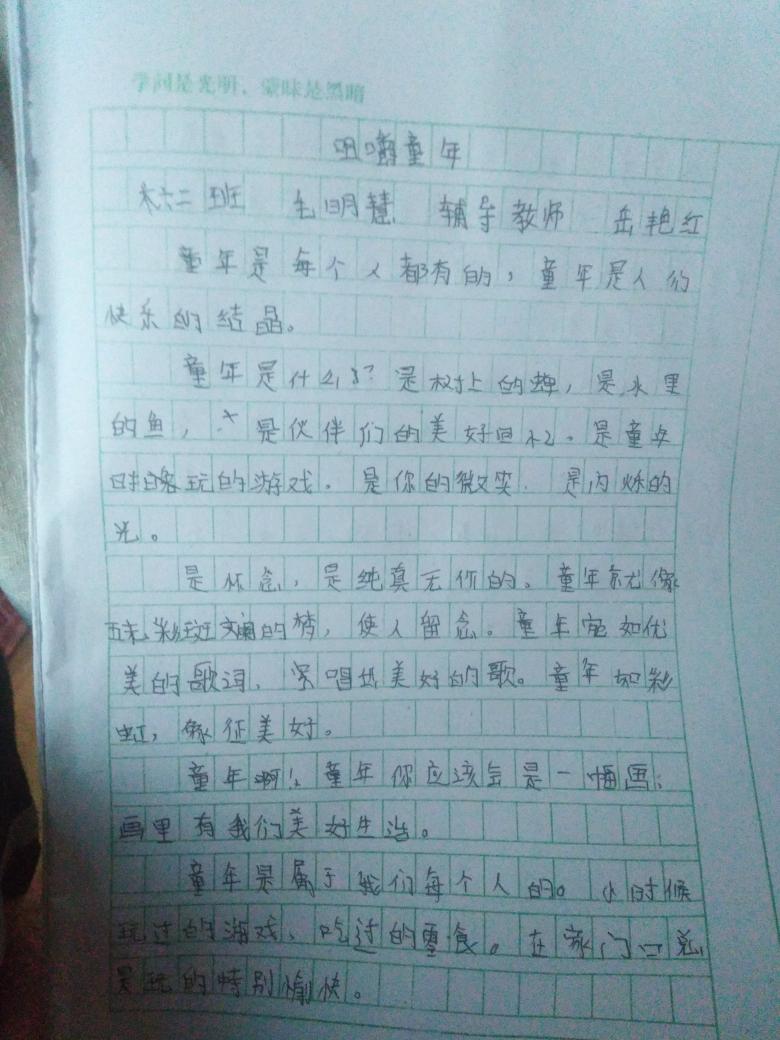 学问是光明，蒙昧是黑暗
咀嚼童年
六二班 毛明慧 辅导教师 岳艳红
童年是每个人都有的，童年是人们
快乐的结晶。
童年是什么？是树上的蝉，是水里
的鱼， 是伙伴们的美好回忆。是童年
时 玩的游戏。是你的微笑。是闪烁的
光。
是怀念，是纯真无 的。童年就像
五彩斑斓的梦，使人留念。童年宛如优
美的歌词， 唱出美好的歌。童年如彩
虹，象征美好。
童年啊！童年你应该会是一幅画；
画里有我们美好生活。
童年是属于我们每个人的。小时候
玩过的游戏、吃过的零食。在家门口总
是玩的特别愉快。